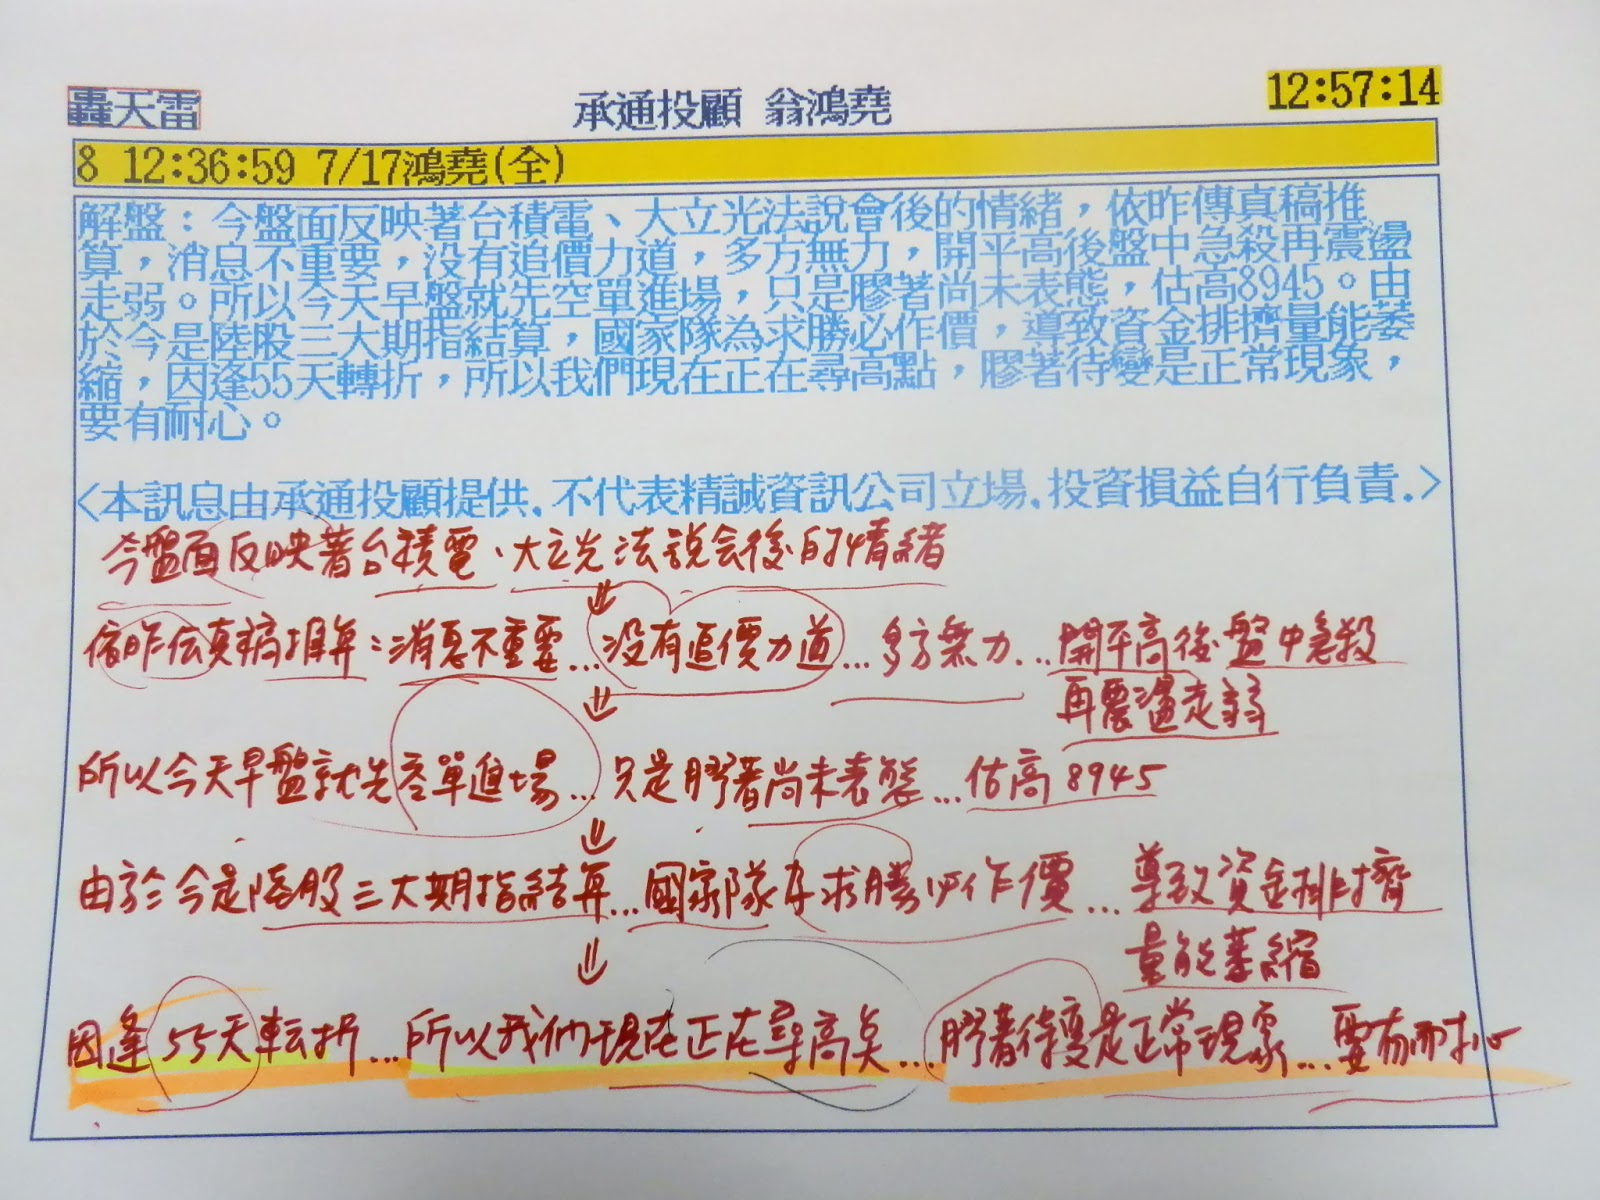 轟天雷
承通投顧 翁鴻堯
12:57:14
8 12:36:59 7/17鴻堯(全)
解盤：今盤面反映著台積電、大立光法說會後的情緒，依昨傳真稿推
算，消息不重要，没有追價力道，多方無力，開平高後盤中急殺再震盪
走弱。所以今天早盤就先空單進場，只是膠著尚未表態，估高8945。由
於今是陸股三大期指結算，國家隊為求勝必作價，導致資金排擠量能萎
縮，因逢55天轉折，所以我們現在正在尋高點，膠著待變是正常現象，
要有耐心。
<本訊息由承通投顧提供.不代表精誠資訊公司立場.投資損益自行負責.>
今盤面反映著台積電、大立光法說会後的情緒
依昨伝真稿推算：消息不重要...没有追價力道...多方無力...開平高後盤中急殺
再震盪走弱
所以今天早盤就先空單進場...只是膠著尚未表態...估高8945
由於今是陸股三大期指結算...國家隊為求勝必作價...導致資金排擠
量能萎縮
因逢55天転折...所以我們現在正在尋高点...膠著待變是正常現象...要有耐心